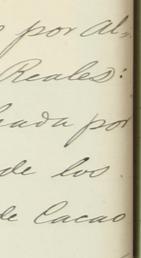 por al-
Reales:
por
de los
de Cacao